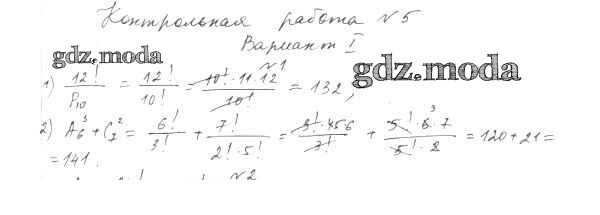 Контрольная работа N5
Вариант I
gdz.moda
gdz.moda
N1
1) 12!/P₁₀ = 12!/10! = 10!·11·12/10! = 132,
2) A₆³ + C₇² = 6!/3! + 7!/(2!·5!) = 3!·456/3! + 5!·6·7/(5!·2) = 120+21=
=141.
N2